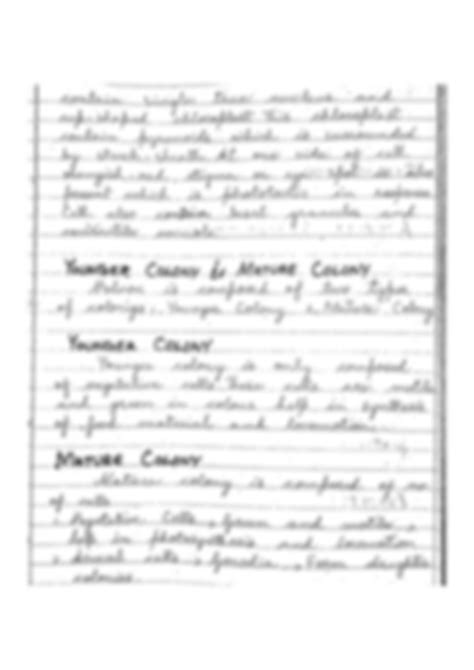 contain single nucleus and
cup-shaped chloroplast. This chloroplast
contain pyrenoids which is surrounded
by starch sheath. At one side of cell
red stigma or eye spot is also
present which is phototactic in response
Cell also contain basal granules and
contractile vacuole
YOUNGER COLONY & MATURE COLONY
Volvox is composed of two types
of colonies, Younger Colony & Mature Colony
YOUNGER COLONY
Younger colony is only composed
of vegetative cells. These cells are motile
and green in colour help in synthesis
of food material and locomotion
MATURE COLONY
Mature colony is composed of
of cells
Vegetative Cells, Green and motile,
help in photosynthesis and locomotion
Asexual cells, Gonidia, Form daughter
colonies